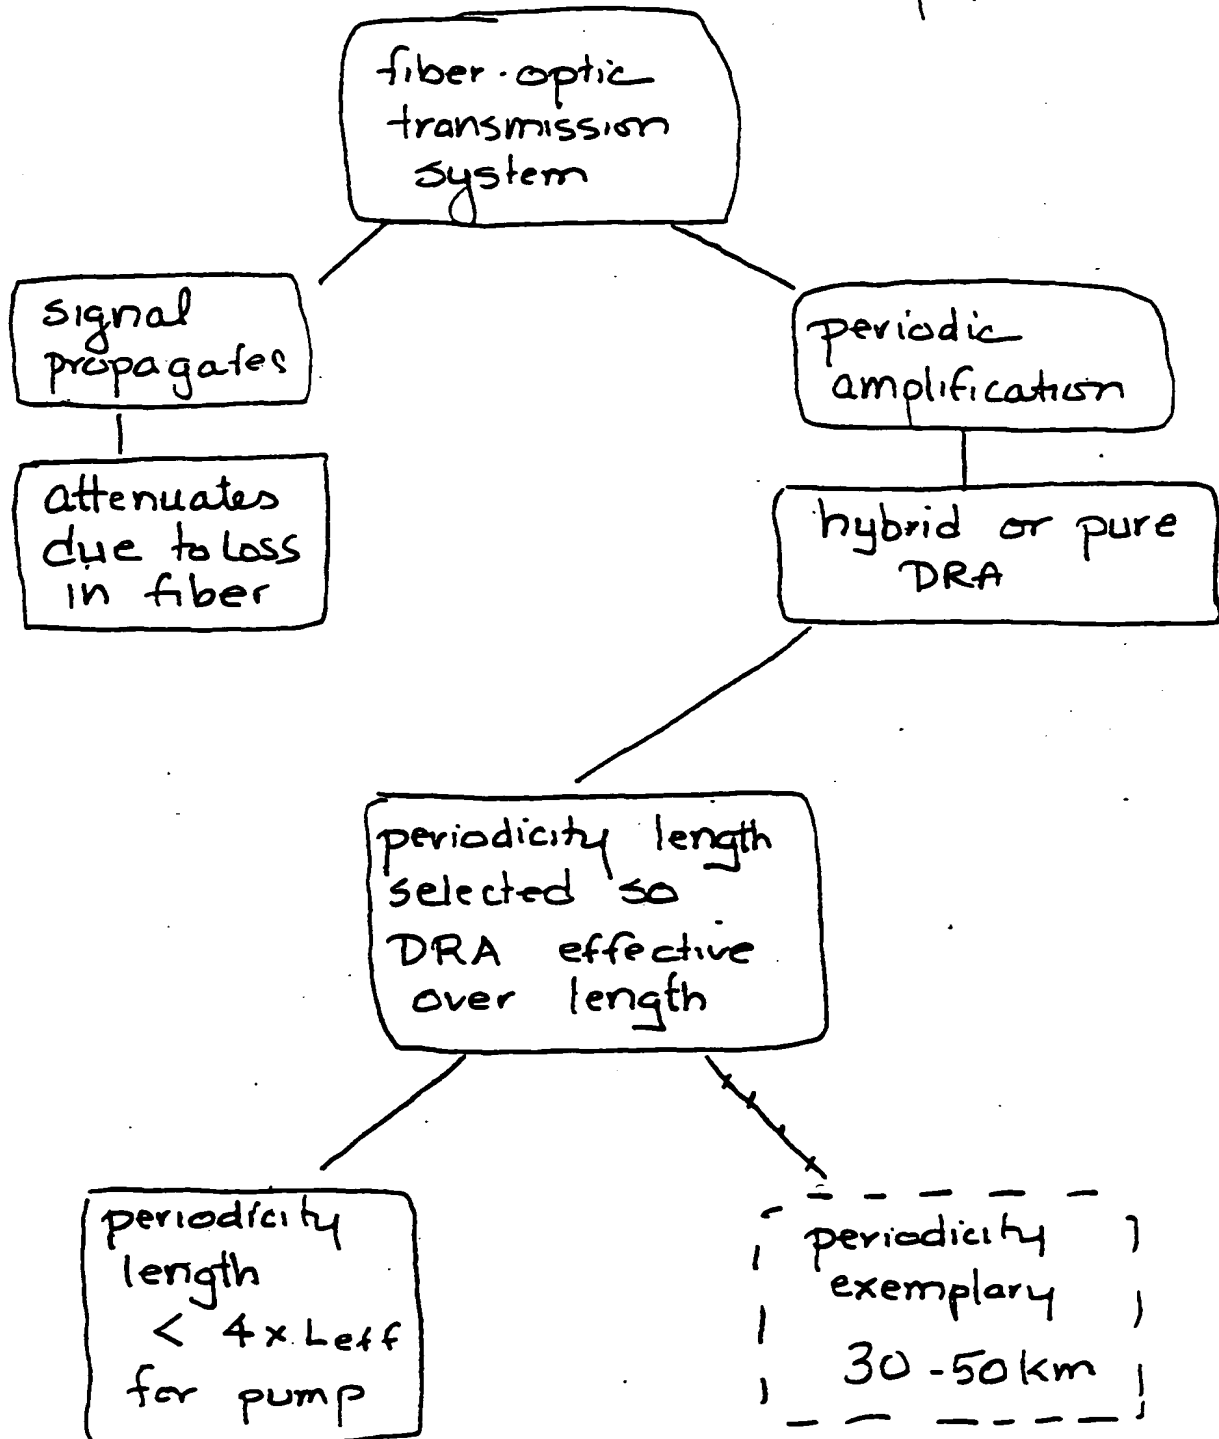 fiber-optic
transmission
system
signal
propagates
periodic
amplification
attenuates
due to loss
in fiber
hybrid or pure
DRA
periodicity length
selected so
DRA effective
over length
periodicity
length
< 4x Leff
for pump
periodicity
exemplary
30-50 km